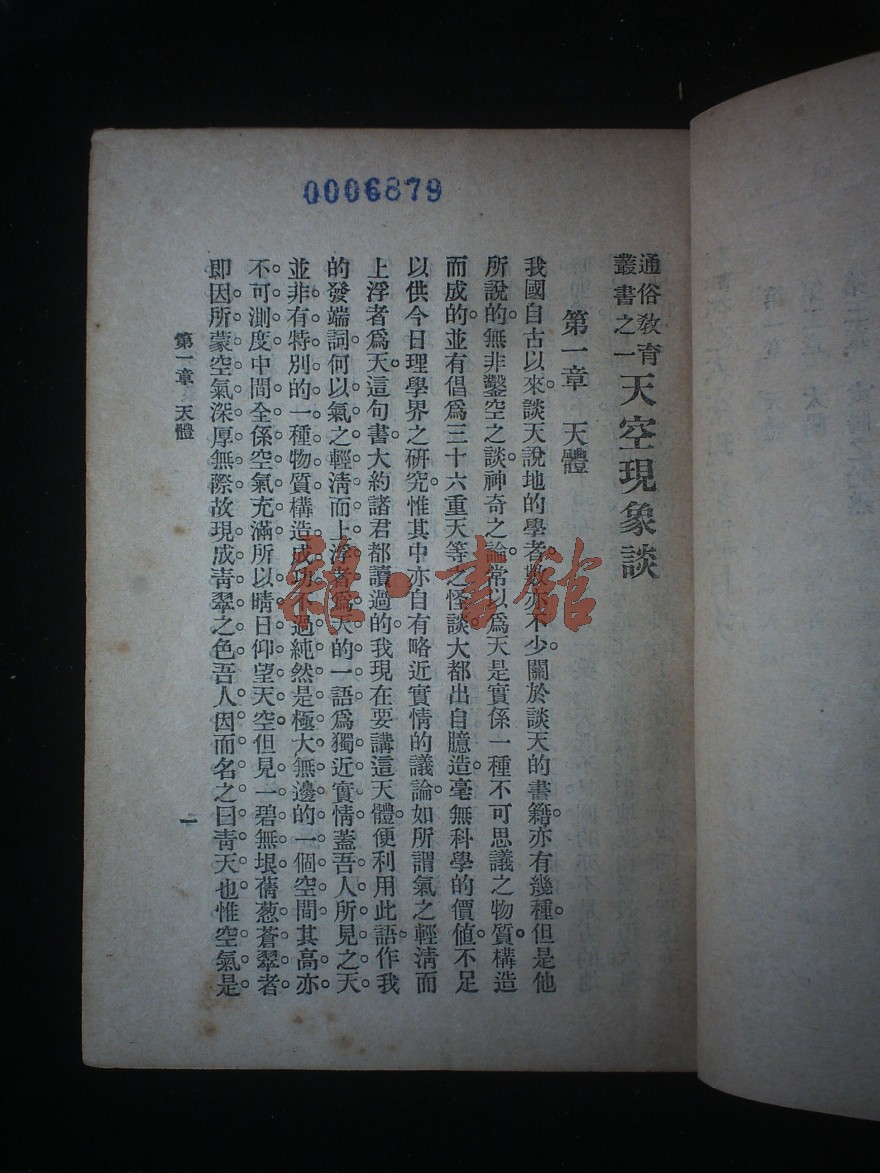 0006879
通俗教育
叢書之一
天空現象談
第一章 天體
我國自古以來談天說地的學者數亦不少關於談天的書籍亦有幾種但是他
所說的無非鑿空之談神奇之論常以爲天是實係一種不可思議之物質構造
而成的並有倡爲三十六重天等之怪談大都出自臆造毫無科學的價値不足
以供今日理學界之研究惟其中亦自有略近實情的議論如所謂氣之輕淸而
上浮者爲天這句書大約諸君都讀過的我現在要講這天體便利用此語作我
的發端詞何以氣之輕淸而上浮者爲天的一語爲獨近實情蓋吾人所見之天
並非有特別的一種物質構造成功不過純然是極大無邊的一個空間其高亦
不可測度中間全係空氣充滿所以晴日仰望天空但見一碧無垠蒨葱蒼翠者
卽因所蒙空氣深厚無際故現成靑翠之色吾人因而名之曰靑天也惟空氣是
第一章 天體
一
雜·書館